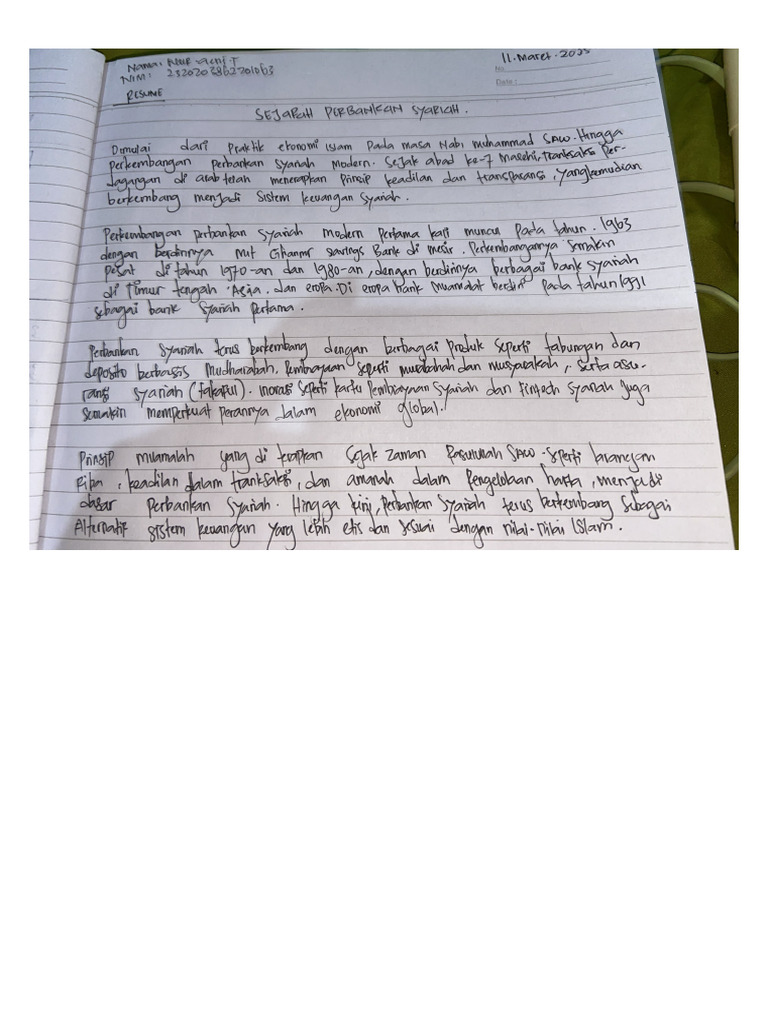 Nama: Nur
11. Maret. 2025
NIM:
No
Date:
RESUME
SEJARAH PERBANKAN SYARIAH.
Dimulai dari Praktik ekonomi islam Pada masa Nabi Muhammad SAW. Hingga
Perkembangan perbankan syariah Modern. Sejak abad ke-7 Masehi, tranksaksi Per-
dagangan di arab telah menerapkan Prinsip keadilan dan transparansi, yang kemudian
berkembang menjadi Sistem keuangan Syariah.
Perkembangan perbankan Syariah modern Pertama kali muncul Pada tahun. 1963
dengan berdirinya Mit Ghamr savings Bank di mesir. Perkembangannya Semakin
Pesat di tahun 1970-an dan 1980-an, dengan berdirinya berbagai bank syariah
di Timur tengah. Asia. dan eropa. Di eropa bank Muamalat berdiri Pada tahun 1991
sebagai bank Syariah Pertama.
Perbankan Syariah terus berkembang dengan berbagai Produk Seperti tabungan dan
deposito berbasis Mudharabah, Pembiayaan Seperti murabahah dan musyarakah, serta asu-
ransi Syariah (takaful). inovasi Seperti kartu Pembiayaan Syariah dan Fintech Syariah Juga
Semakin memperkuat perannya dalam ekonomi global.
Prinsip muamalah yang di terapkan Sejak zaman Rasulullah SAW. Seperti larangan
Riba, keadilan dalam tranksaksi, dan amanah dalam Pengelolaan harta, menjadi
dasar Perbankan Syariah. Hingga kini, Perbankan Syariah terus berkembang Sebagai
Alternatif sistem keuangan yang lebih etis dan Sesuai dengan Nilai-Nilai Islam.